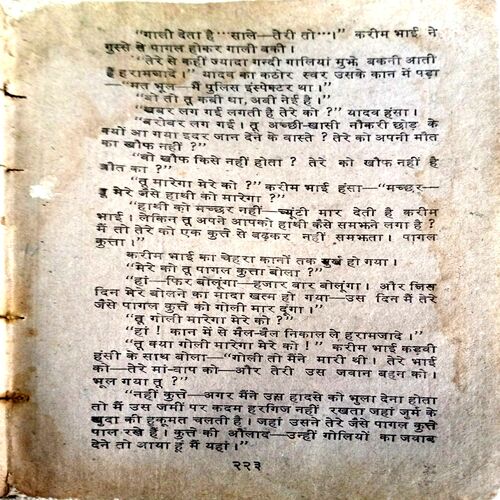 "गाली देता है···साले—तेरी तो···।" करीम भाई ने
गुस्से से पागल होकर गाली बकी।
"तेरे से कहीं ज्यादा गन्दी गालियां मुझे बकनी आती
हूं हरामजादे।" यादव का कठोर स्वर उसके कान में पड़ा
—"मत भूल—मैं पुलिस इंस्पेक्टर था।"
"वो तो तू कबी था, अबी नेई है।"
"खबर लग गई लगती है तेरे को ?" यादव हंसा।
"बरोबर लग गई। तू अच्छी-खासी नौकरी छोड़ के
क्यों आ गया इदर जान देने के वास्ते ? तेरे को अपनी मौत
का खौफ नहीं ?"
"वो खौफ किसे नहीं होता ? तेरे को खौफ नहीं है
मौत का ?"
"तू मारेगा मेरे को ?" करीम भाई हंसा—"मच्छर—
तू मेरे जैसे हाथी को मारेगा ?"
"हाथी को मच्छर नहीं—च्यूंटी मार देती है करीम
भाई। लेकिन तू अपने आपको हाथी कैसे समझने लगा है ?
मैं तो तेरे को एक कुत्ते से बढ़कर नहीं समझता। पागल
कुत्ता।"
करीम भाई का चेहरा कानों तक सुर्ख हो गया।
"मेरे को तू पागल कुत्ता बोला ?"
"हां—फिर बोलूंगा—हजार बार बोलूंगा। और जिस
दिन मेरे बोलने का मादा खत्म हो गया—उस दिन मैं तेरे
जैसे पागल कुत्ते को गोली मार दूंगा।"
"तू गोली मारेगा मेरे को ?"
"हां ! कान में से मैल-वैल निकाल ले हरामजादे।"
"तू क्या गोली मारेगा मेरे को !" करीम भाई कड़वी
हंसी के साथ बोला—"गोली तो मैंने मारी थी। तेरे भाई
को—तेरे मां-बाप को—और तेरी उस जवान बहन को।
भूल गया तू ?"
"नहीं कुत्ते—अगर मैंने उस हादसे को भुला देना होता
तो मैं उस जमीं पर कदम हरगिज नहीं रखता जहां जुर्म के
खुदा की हुकूमत चलती है। जहां उसने तेरे जैसे पागल कुत्ते
पाल रखे हैं। कुत्ते की औलाद—उन्हीं गोलियों का जवाब
देने तो आया हूं मैं यहां।"
२२३